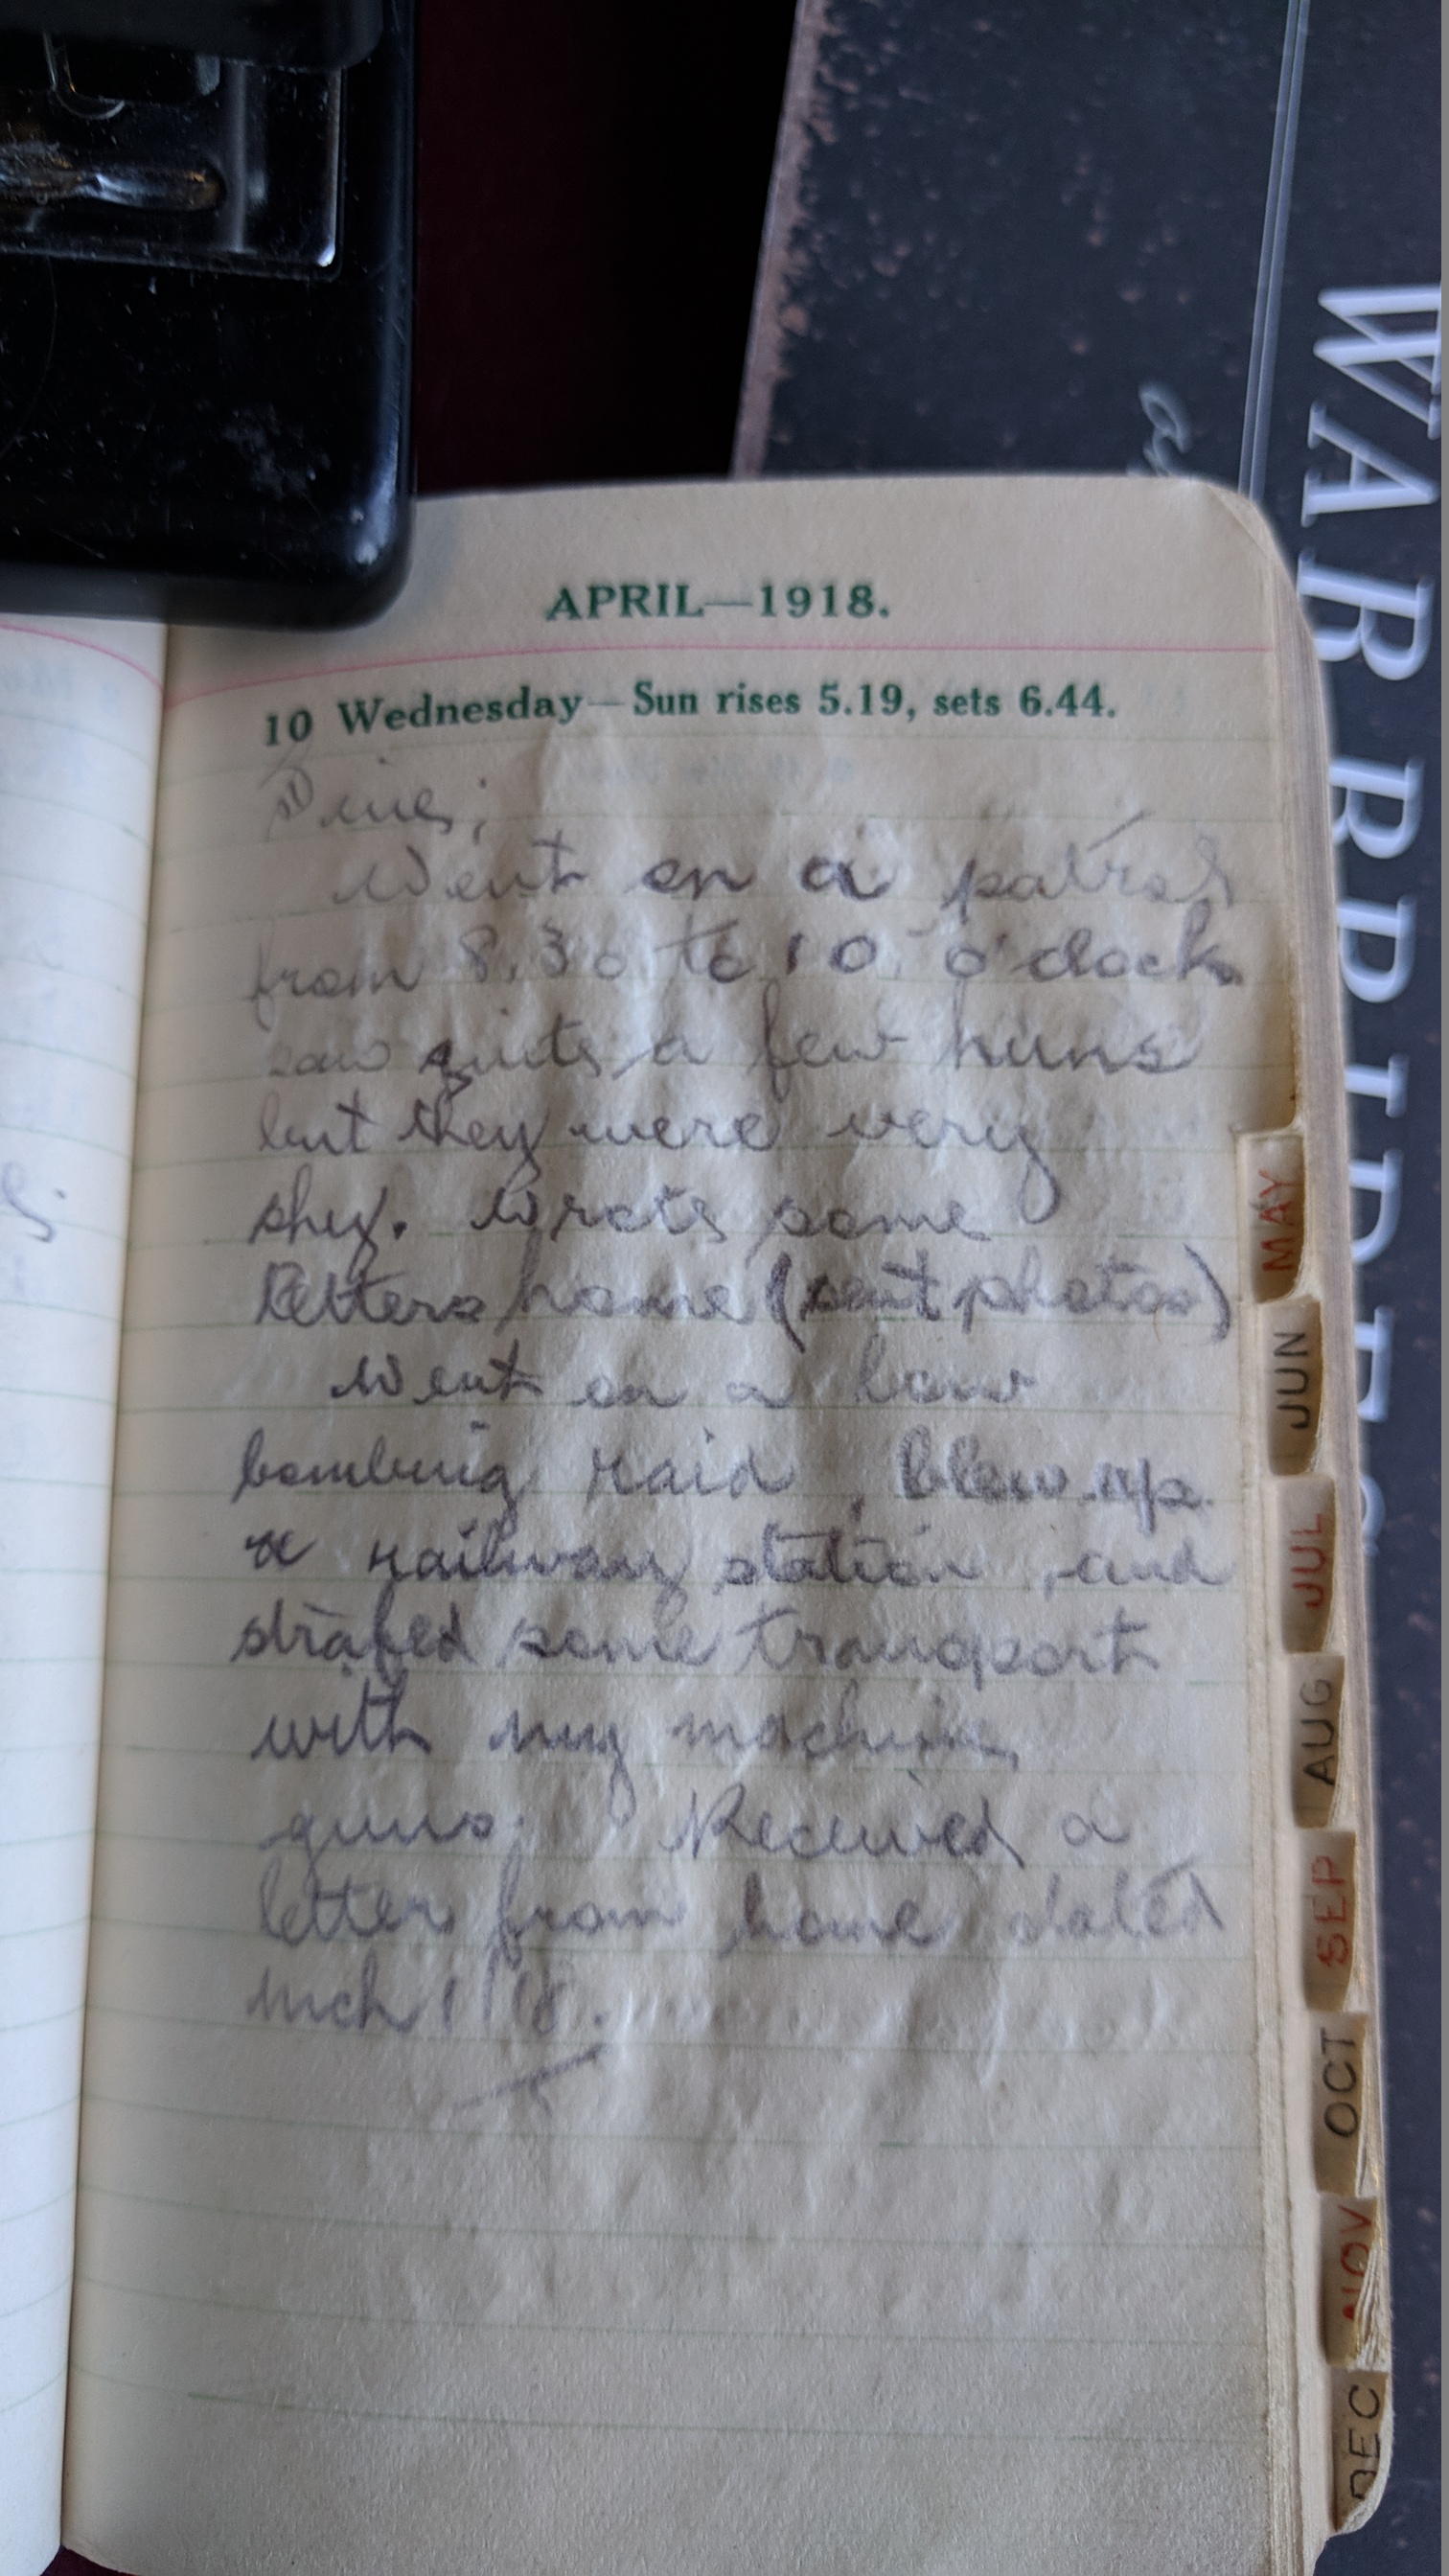 WARBRIDES
APRIL—1918.
10 Wednesday—Sun rises 5.19, sets 6.44.
Went on a patrol
from 8.30 to 10 o'clock
saw quite a few huns
but they were very
shy. Wrote some
letters home (sent photos)
Went on a low
bombing raid, blew up
a railway station, and
strafed some transport
with my machine
guns. Received a
letter from home dated
Mch 1/18.
MAY
JUN
JUL
AUG
SEP
OCT
NOV
DEC